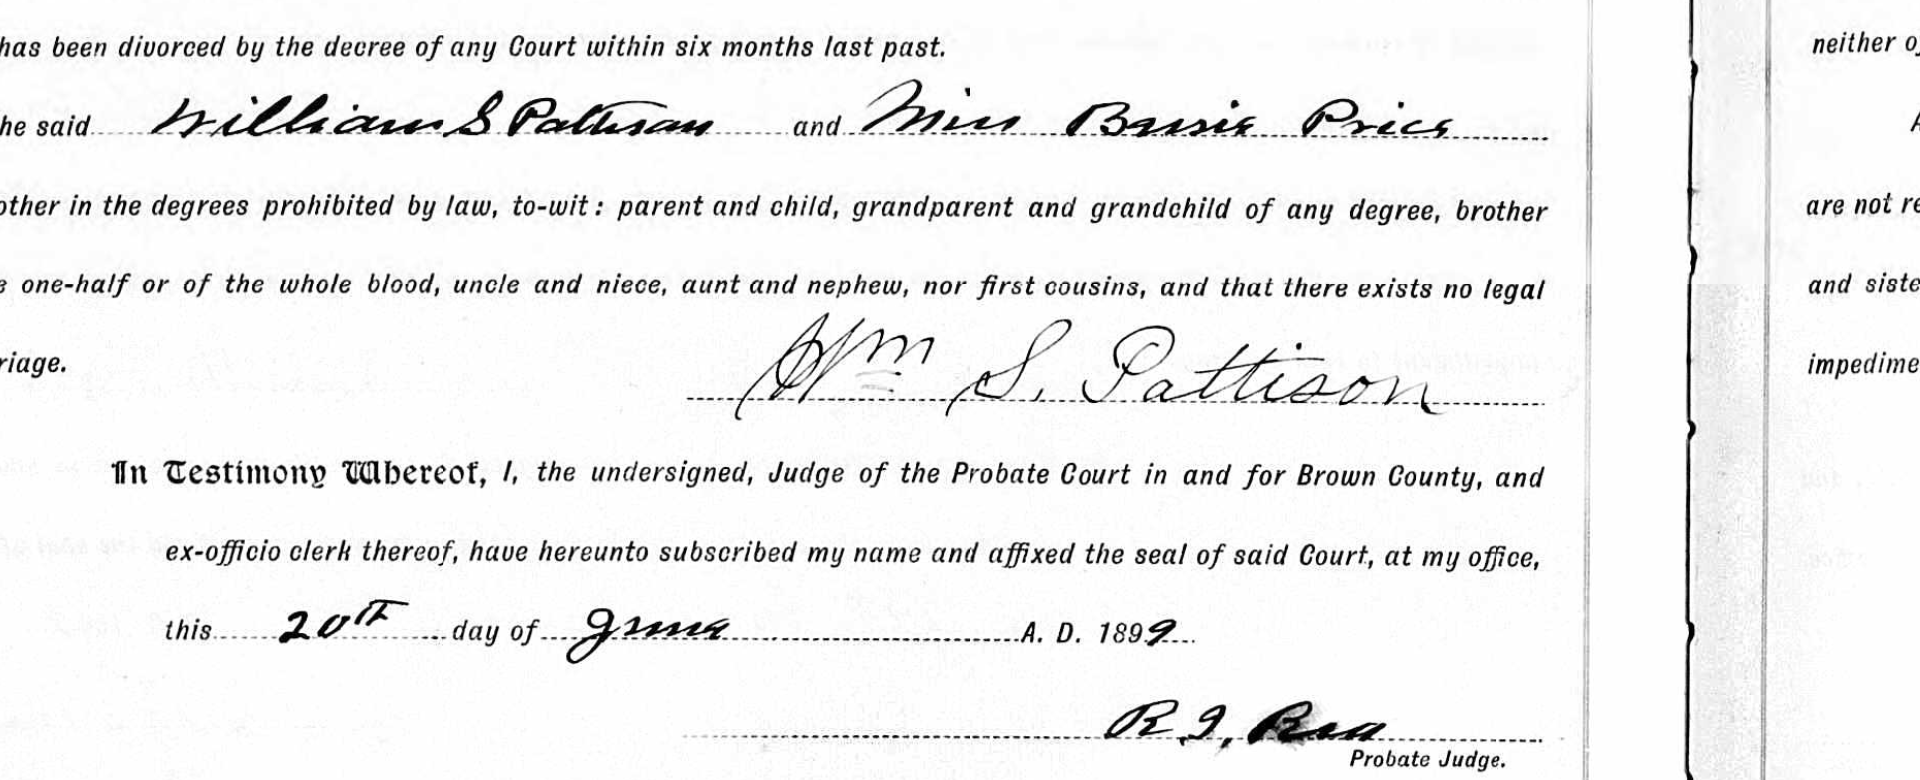 has been divorced by the decree of any Court within six months last past.
he said William S Pattison and Miss Bessie Price
other in the degrees prohibited by law, to-wit: parent and child, grandparent and grandchild of any degree, brother
one-half or of the whole blood, uncle and niece, aunt and nephew, nor first cousins, and that there exists no legal
riage.
Wm S. Pattison
In Testimony Whereof, I, the undersigned, Judge of the Probate Court in and for Brown County, and
ex-officio clerk thereof, have hereunto subscribed my name and affixed the seal of said Court, at my office,
this 20th day of June A. D. 1899
R. I. Rea
Probate Judge.
neither
A
are not re
and siste
impedime